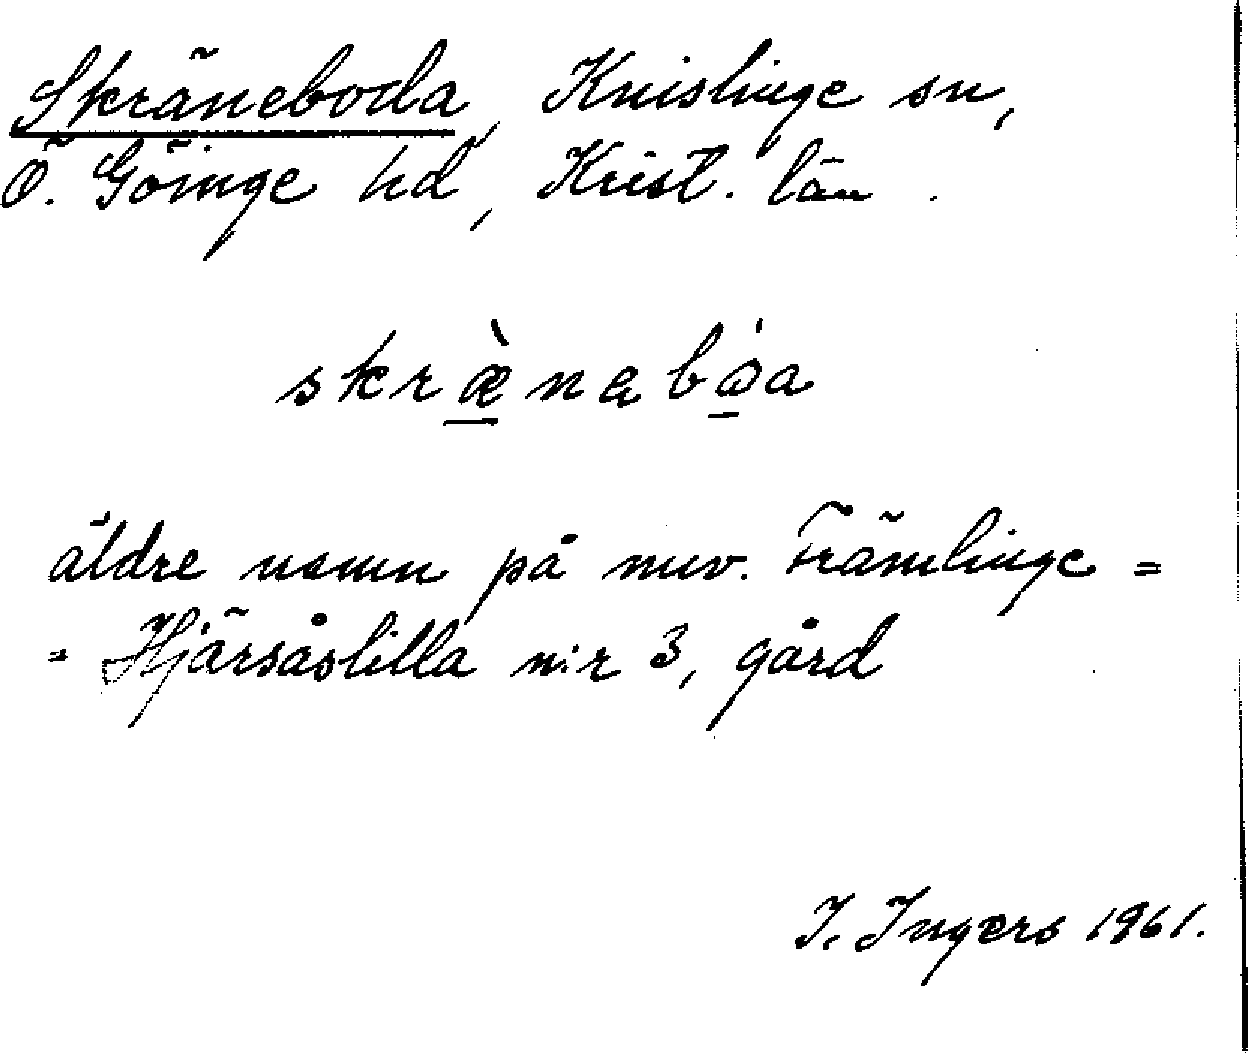 Skräneboda, Knislinge sn,
Ö. Göinge hd, Krist. län.
skræ̀nabóa
äldre namn på nuv. Främlinge =
= Hjärsåslilla n:r 3, gård
I. Ingers 1961.